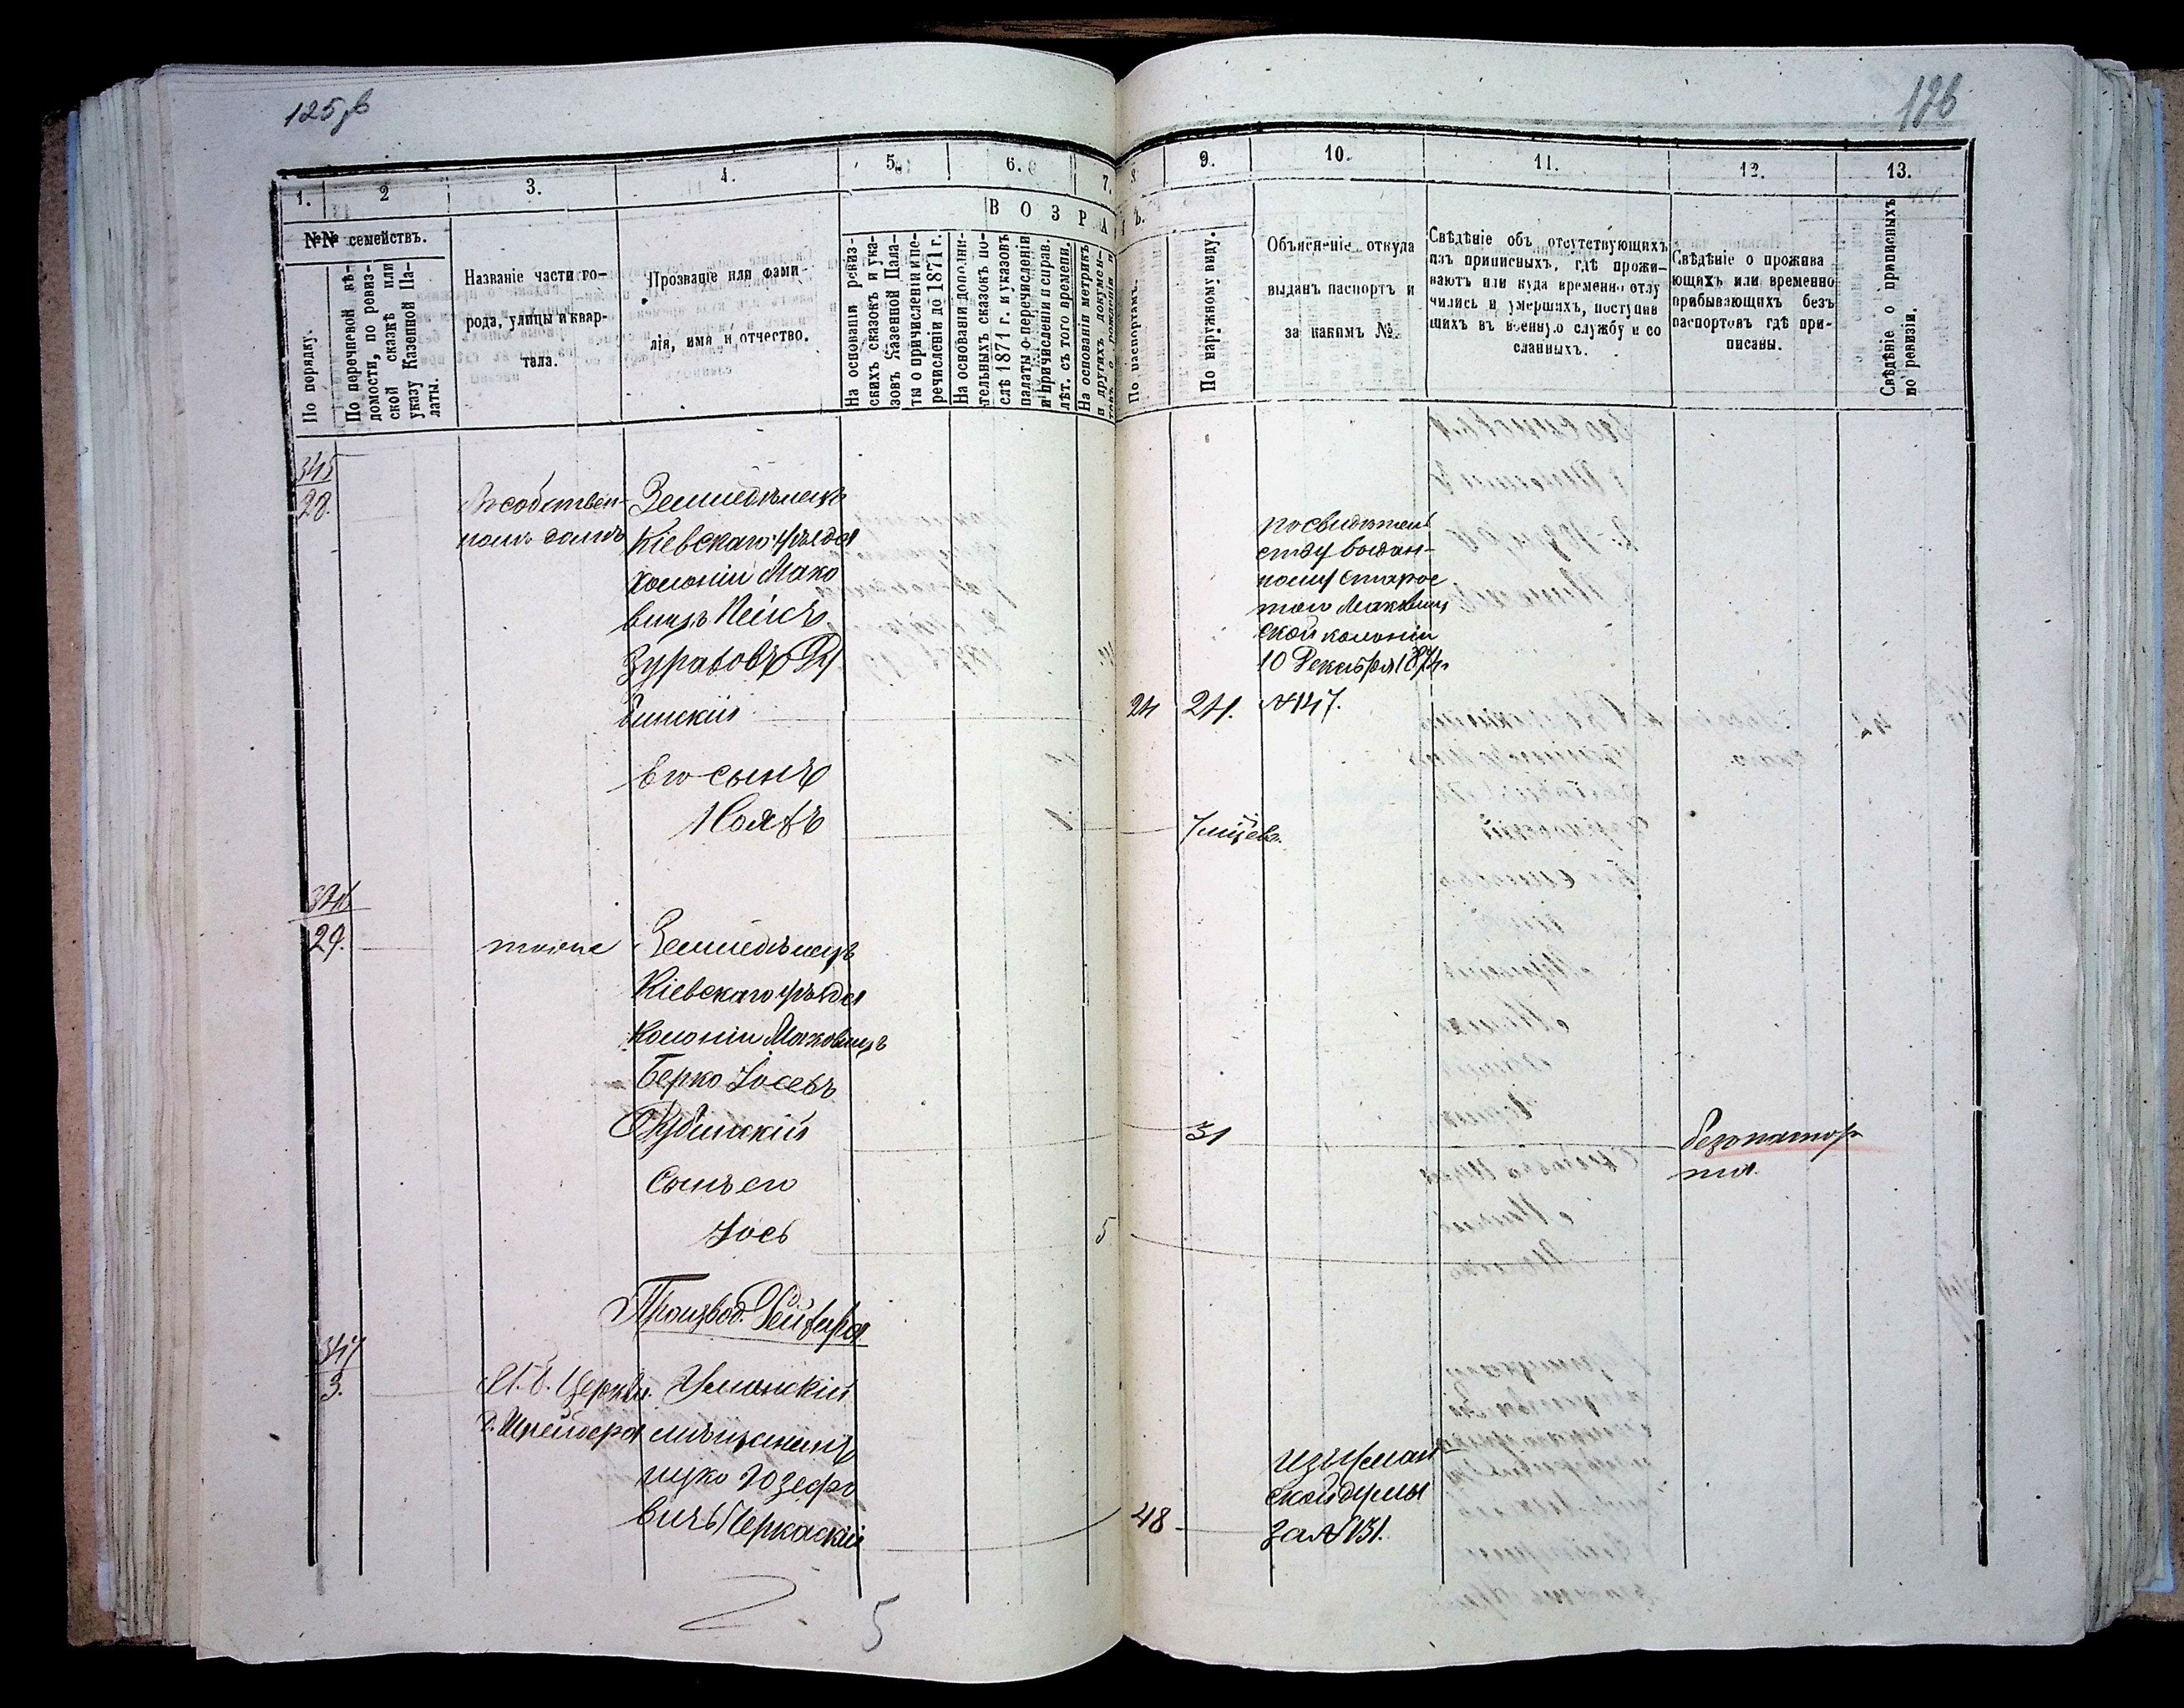 125 об
126
1.
2
3.
4.
5.
6.
7.
8
9.
10.
11.
12.
13.
№№ семействъ.
По порядку.
По перечневой вѣ-
домости, по ревиз-
ской сказкѣ или
указу Казенной Па-
латы.
Названіе части го-
рода, улицы и квар-
тала.
Прозваніе или фами-
лія, имя и отчество.
ВОЗРА
На основаніи ревиз-
скихъ сказокъ и ука-
зовъ Казенной Пала-
ты о причисленіи и пе-
речисленіи до 1871 г.
На основаніи дополни-
тельныхъ сказокъ по-
слѣ 1871 г. и указовъ
палаты о перечисленіи
и причисленіи и справ.
лѣт. съ того времени.
На основаніи метрикъ
и другихъ докумен-
товъ о рожденіи и
По паспортамъ.
По наружному виду.
Объясненіе откуда
выданъ паспортъ и
за какимъ №.
Свѣдѣніе объ отсутствующихъ
изъ приписныхъ, гдѣ прожи-
ваютъ или куда временно отлу
чились и умершихъ, поступив
шихъ въ военную службу и со
сланныхъ.
Свѣдѣніе о прожива
ющихъ или временно
прибывающихъ безъ
паспортовъ гдѣ при-
писаны.
Свѣдѣніе о приписныхъ
по ревизіи.
345
28.
Въ собствен-
номъ домѣ
Земледѣлецъ
Кіевскаго уѣзда
колоніи Мако
вищъ Пейсъ
бинскій
24
24.
по свидѣтель
ству выдан-
ному старос
той Маковищ
ской колоніи
10 Декабря 1874
№ 147.
Его сынъ
1
7 мѣсяцев.
346
29.
тоже
Земледѣлецъ
Кіевскаго уѣзда
Колоніи Маковищъ
Берко Іосевъ
Рубинскій
31
безъ паспор
та.
Сынъ его
Іось
5
347
3.
М. Б. Церкви.
Уманскій
мѣщанинъ
Ицко Юзефо
вичъ Черкаскій
48
изъ Уман
ской думы
за № 131.
5